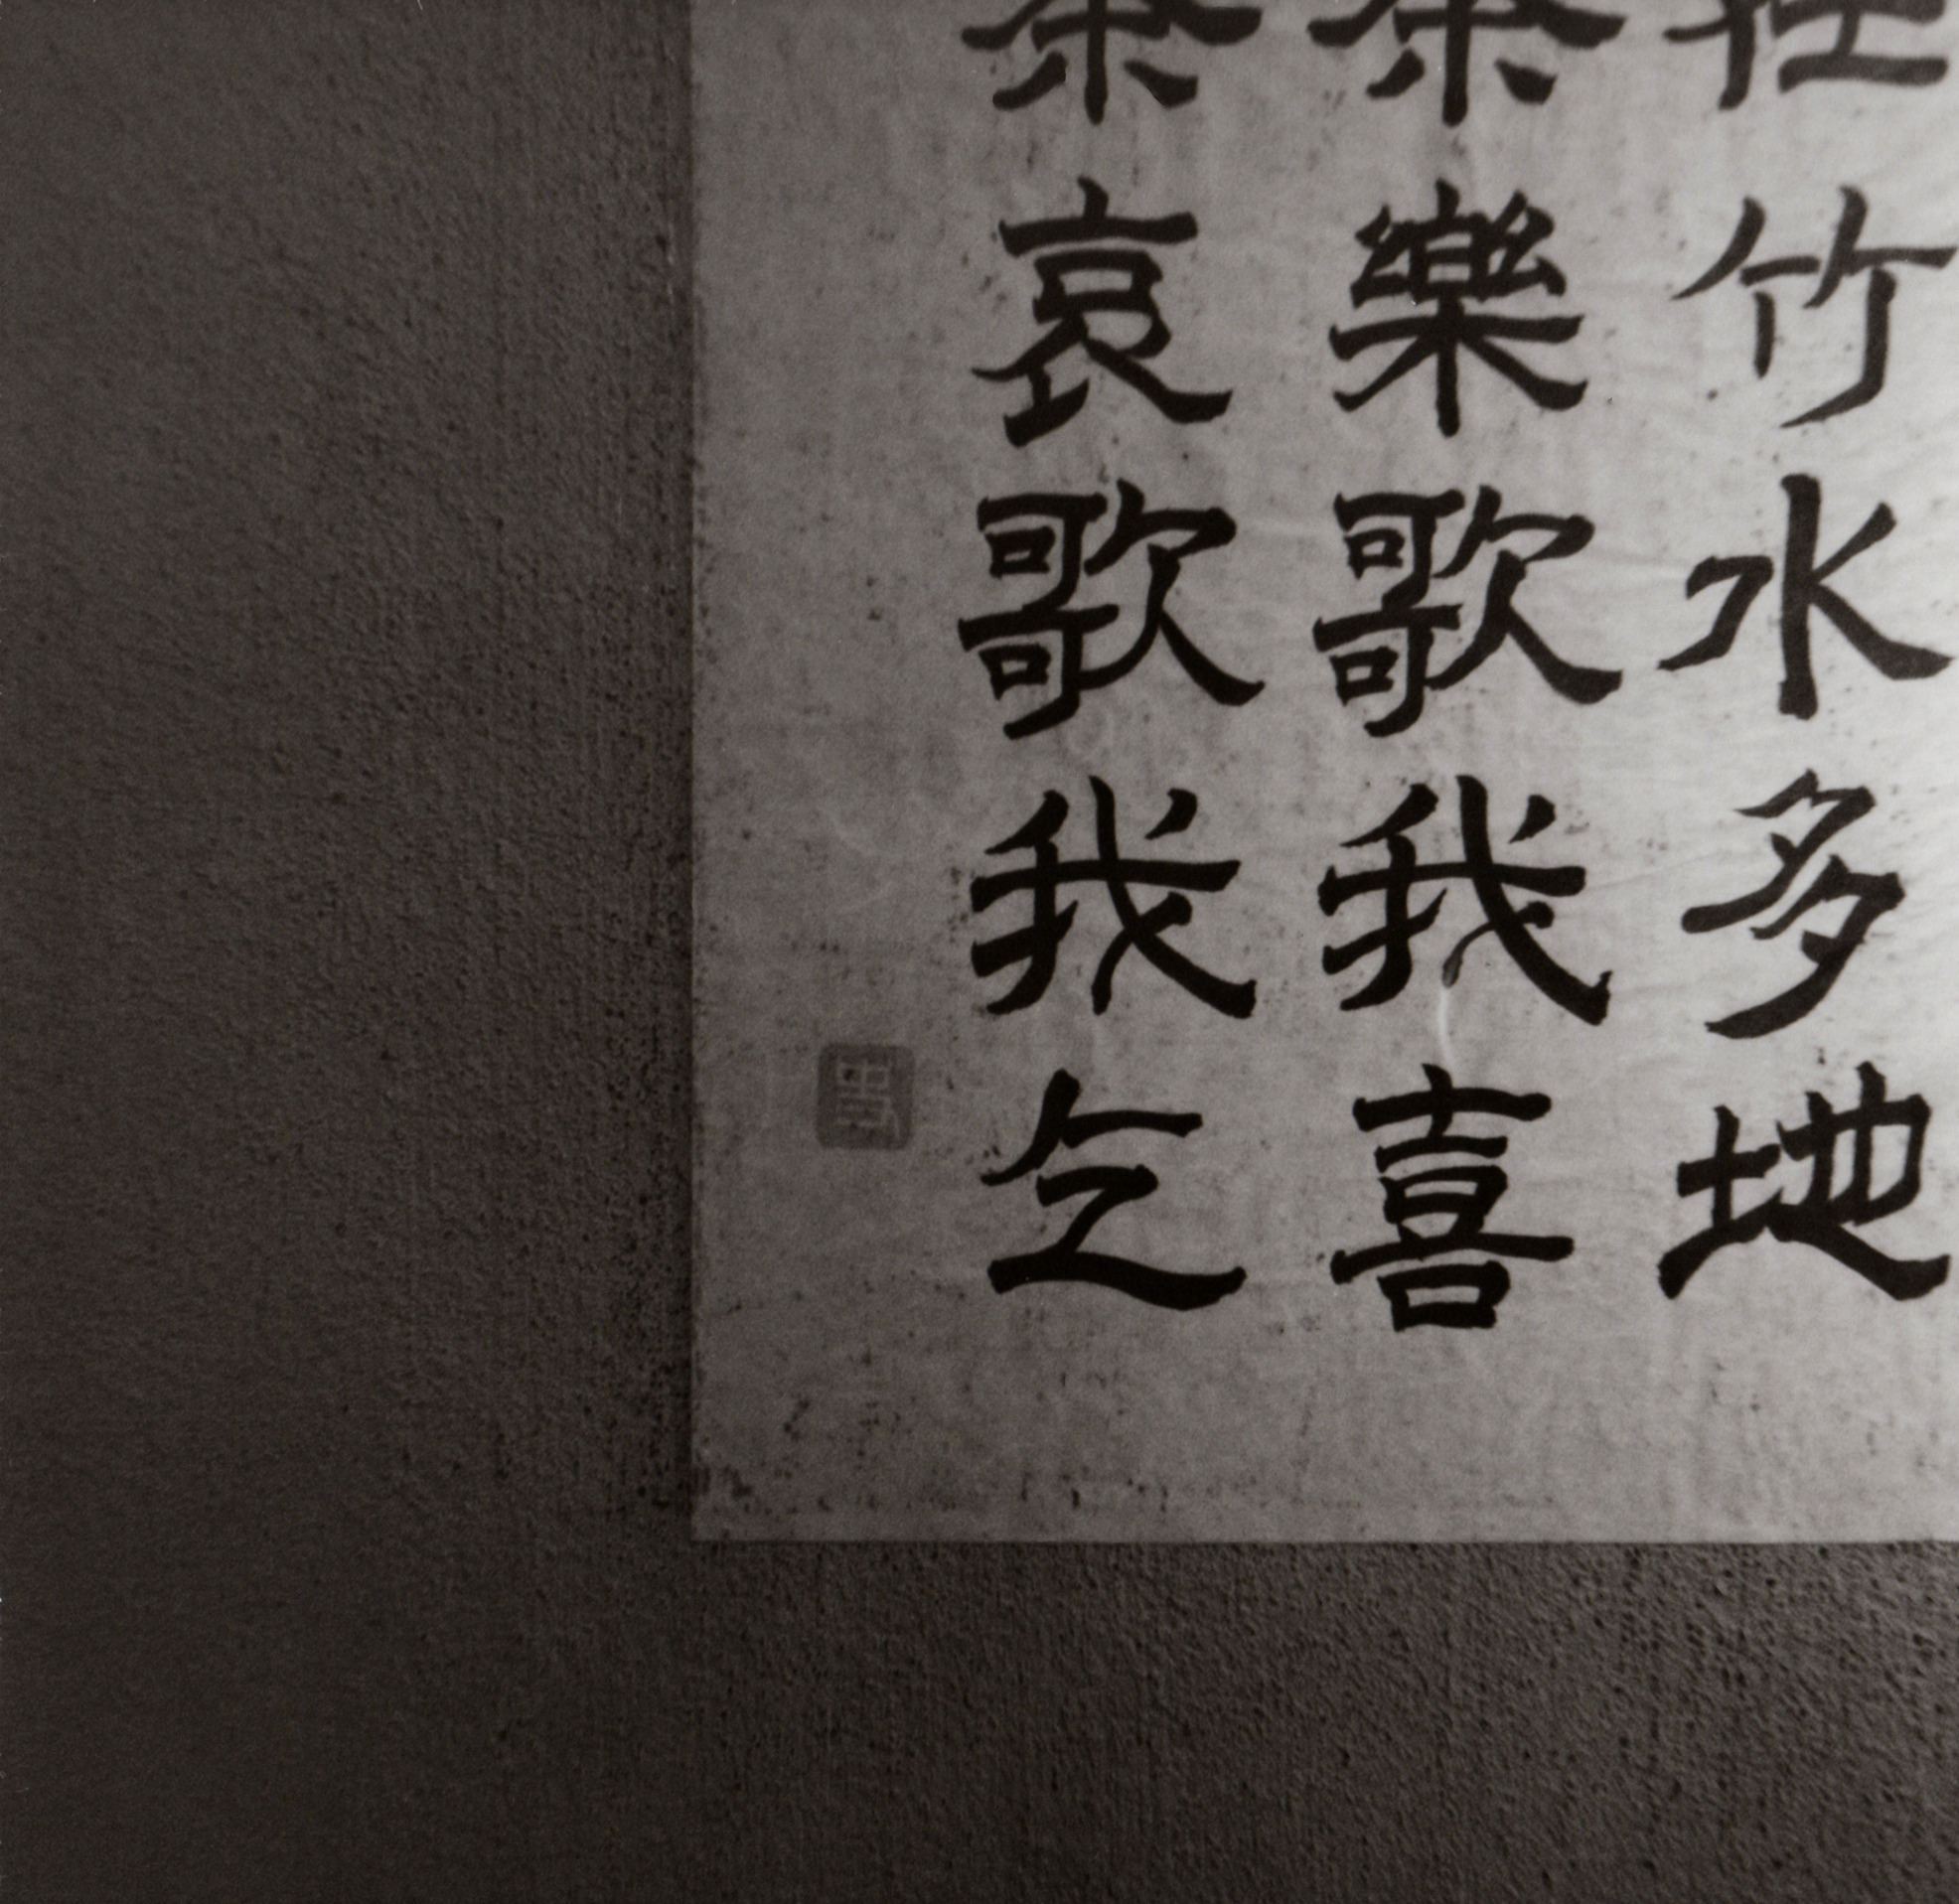 竹水多地
樂歌我喜
哀歌我乞